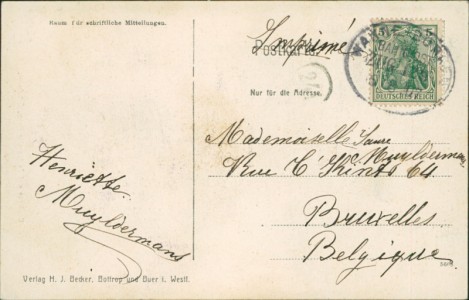 Raum für schriftliche Mitteilungen.
Imprimé
Postkarte
Nur für die Adresse.
DEUTSCHES REICH
Mademoiselle Laure
Muyldermans
Rue T'Kint 64
Bruxelles
Belgique
Henriette
Muyldermans
Verlag H. J. Becker, Bottrop und Buer i. Westf.